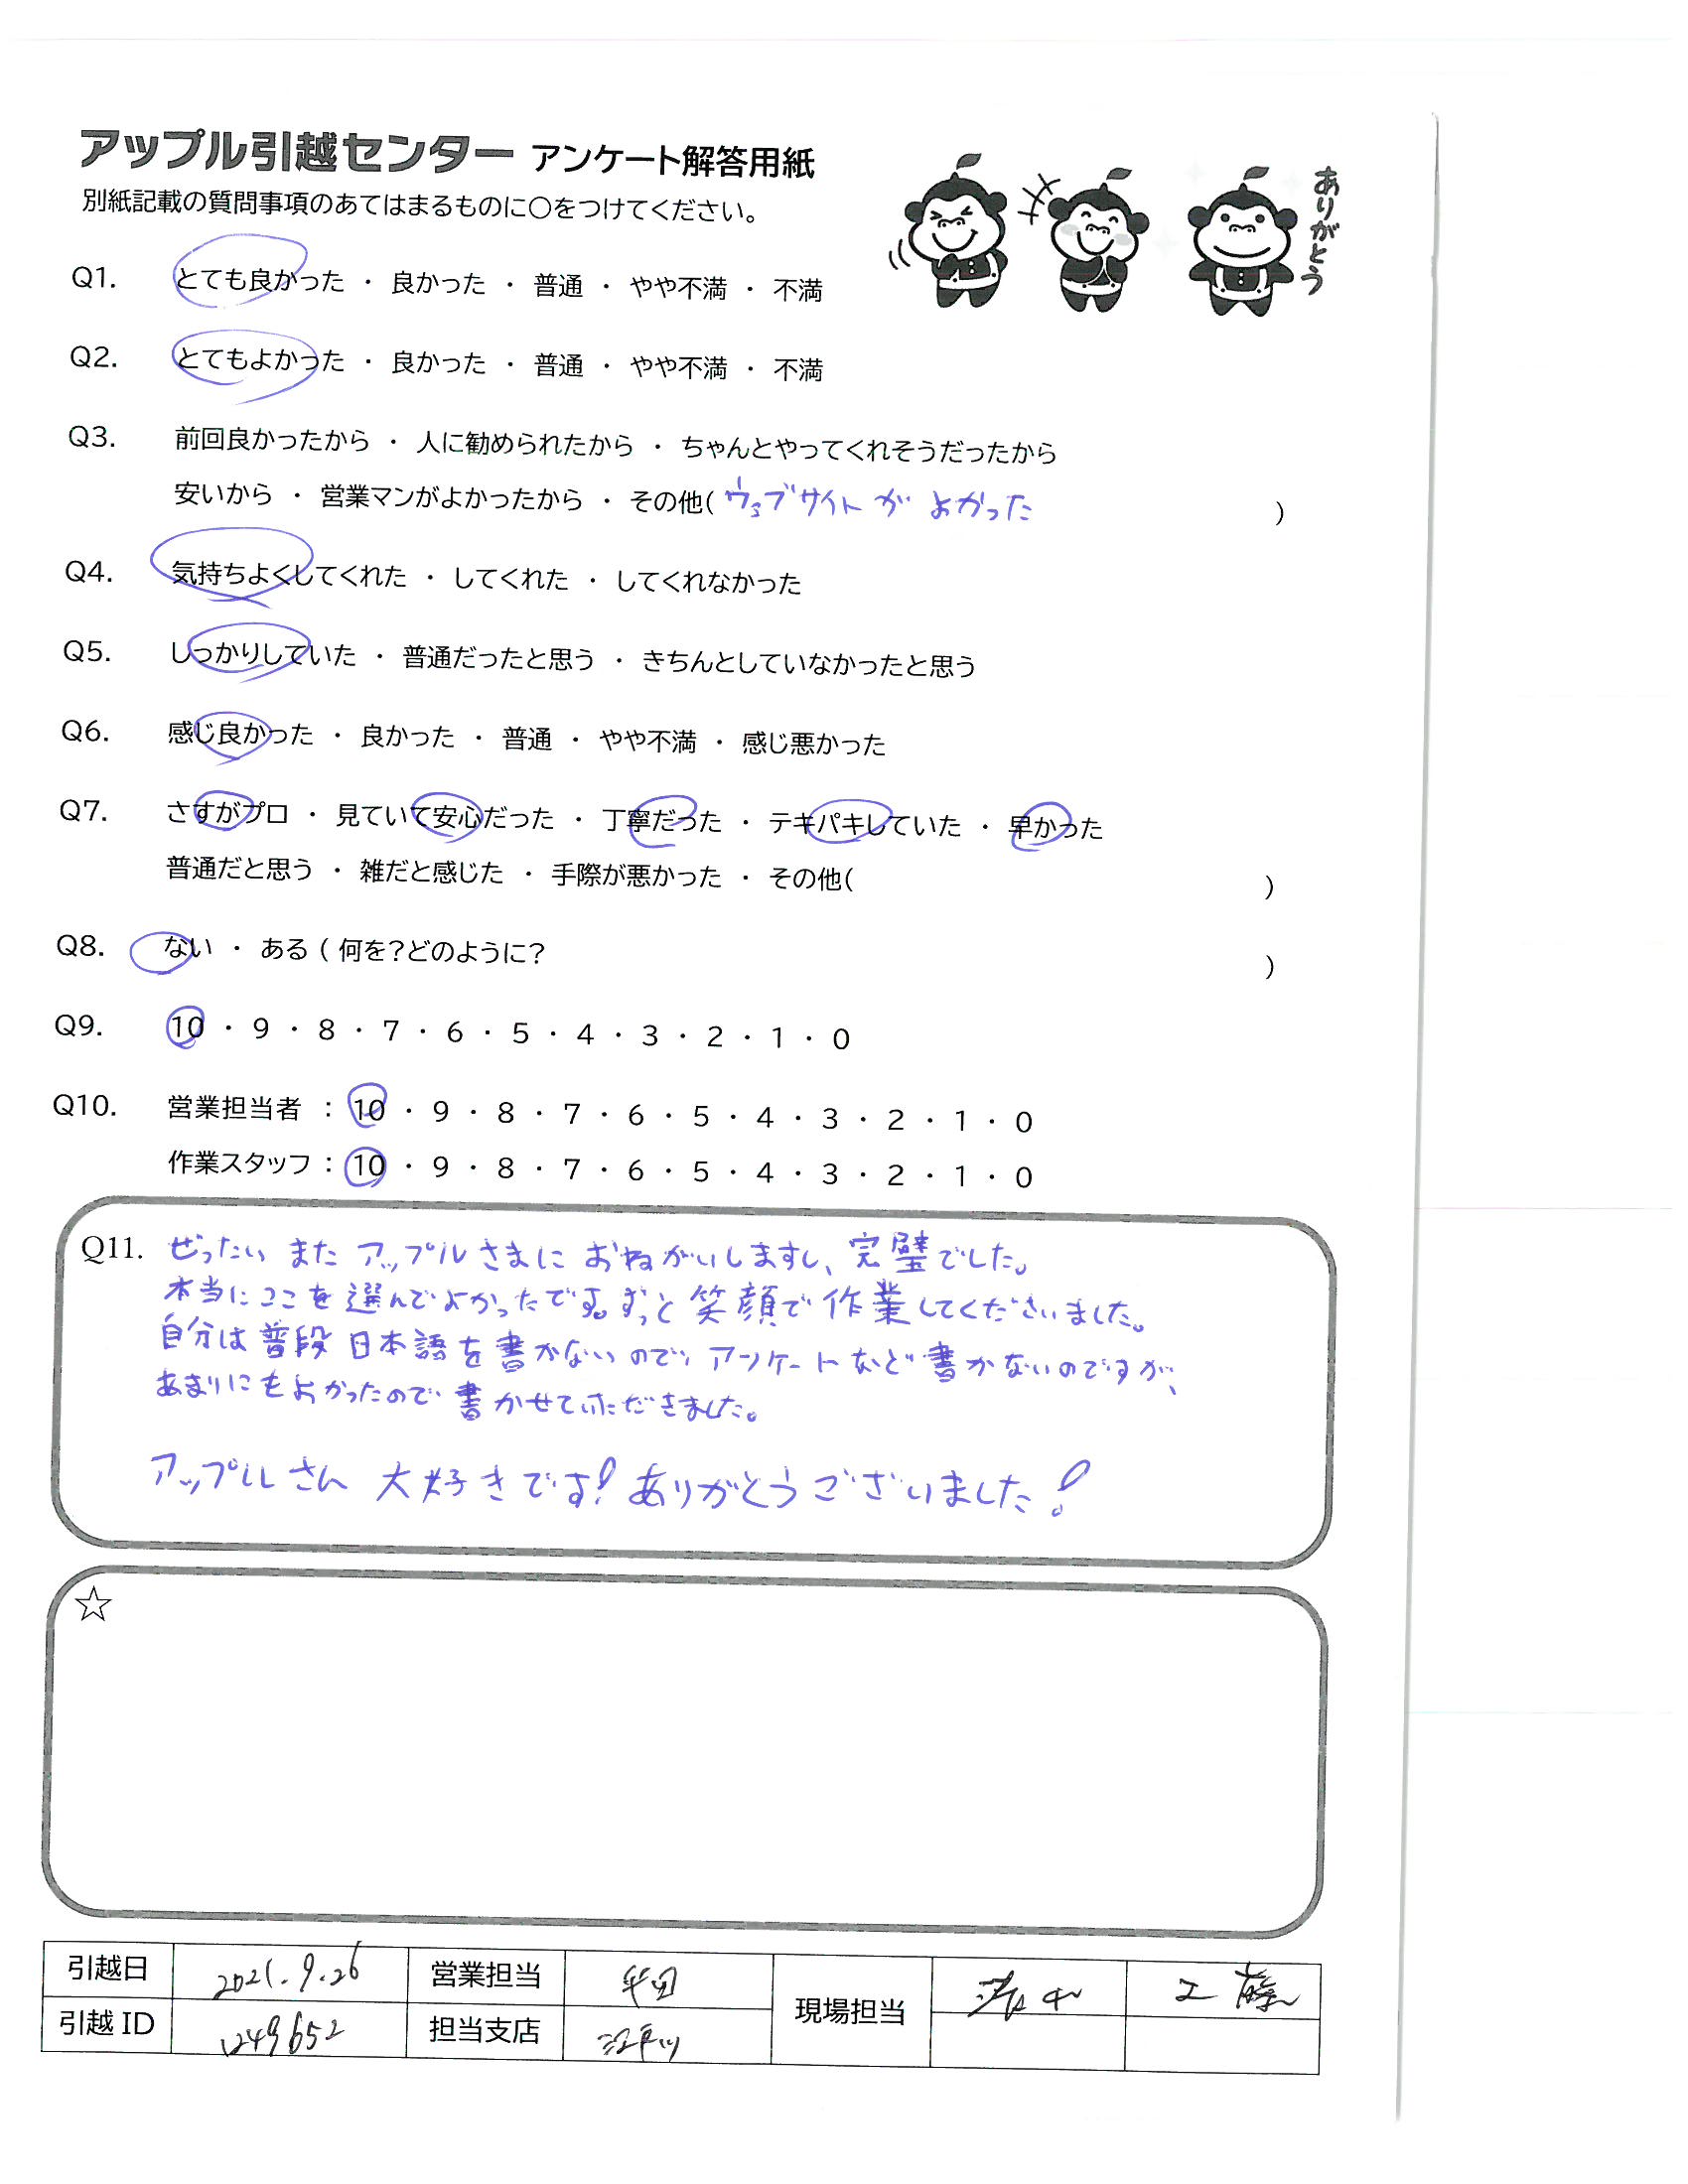 アップル引越センター アンケート解答用紙
別紙記載の質問事項のあてはまるものに○をつけてください。
ありがとう
Q1. とても良かった ・ 良かった ・ 普通 ・ やや不満 ・ 不満
Q2. とてもよかった ・ 良かった ・ 普通 ・ やや不満 ・ 不満
Q3. 前回良かったから ・ 人に勧められたから ・ ちゃんとやってくれそうだったから
安いから ・ 営業マンがよかったから ・ その他( ウェブサイトが よかった )
Q4. 気持ちよくしてくれた ・ してくれた ・ してくれなかった
Q5. しっかりしていた ・ 普通だったと思う ・ きちんとしていなかったと思う
Q6. 感じ良かった ・ 良かった ・ 普通 ・ やや不満 ・ 感じ悪かった
Q7. さすがプロ ・ 見ていて安心だった ・ 丁寧だった ・ テキパキしていた ・ 早かった
普通だと思う ・ 雑だと感じた ・ 手際が悪かった ・ その他( )
Q8. ない ・ ある ( 何を?どのように? )
Q9. 10 ・ 9 ・ 8 ・ 7 ・ 6 ・ 5 ・ 4 ・ 3 ・ 2 ・ 1 ・ 0
Q10. 営業担当者 : 10 ・ 9 ・ 8 ・ 7 ・ 6 ・ 5 ・ 4 ・ 3 ・ 2 ・ 1 ・ 0
作業スタッフ : 10 ・ 9 ・ 8 ・ 7 ・ 6 ・ 5 ・ 4 ・ 3 ・ 2 ・ 1 ・ 0
Q11. ぜったい また アップルさまに おねがいしますし、完璧でした。
本当にここを選んでよかったです。ずっと笑顔で作業してくださいました。
自分は普段日本語を書かないので、アンケートなど書かないのですが、
あまりにもよかったので書かせていただきました。
アップルさん 大好きです! ありがとうございました!
☆
引越日 2021.9.26 営業担当 半田 現場担当 工藤
引越 ID 1249652 担当支店 江戸川